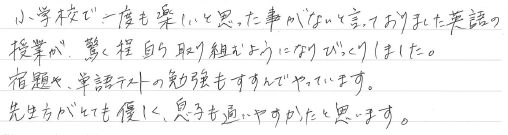 小学校で一度も楽しいと思った事がないと言っておりました英語の
授業が、驚く程自ら取り組むようになりびっくりしました。
宿題や、単語テストの勉強もすすんでやっています。
先生方がとても優しく、息子も通いやすかったと思います。